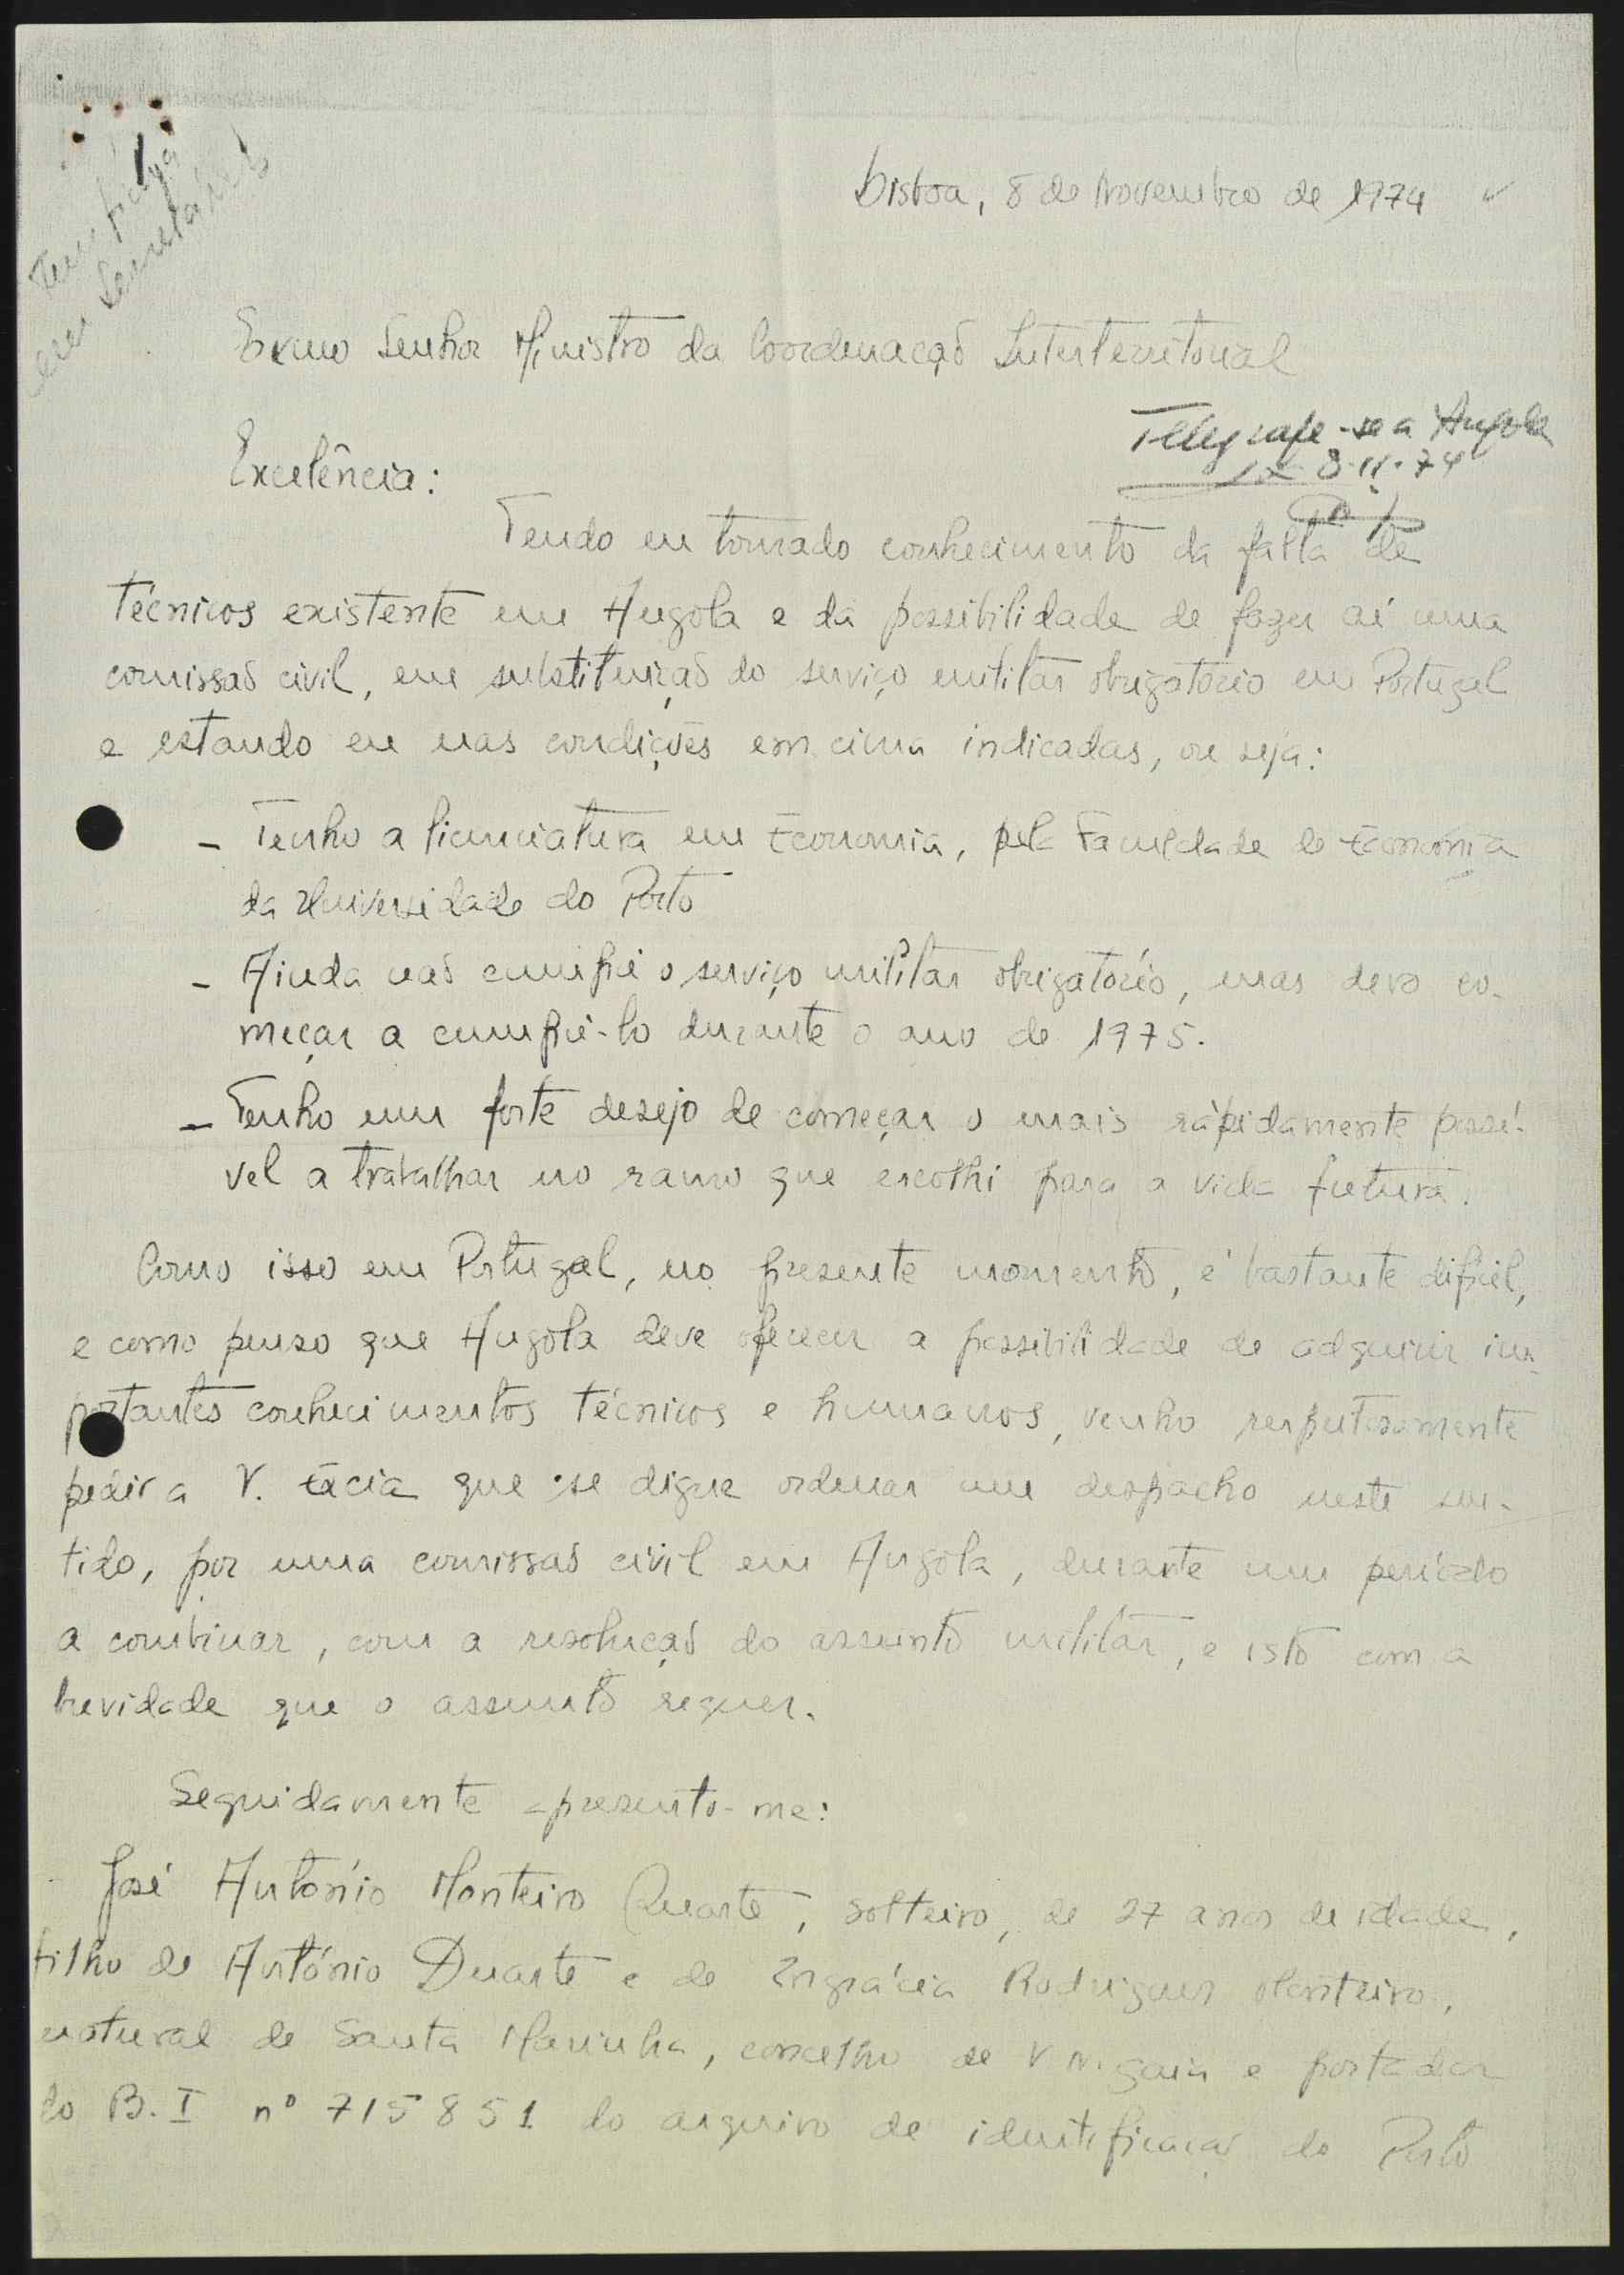 Tem ficha
em Secretariado
Lisboa, 8 de Novembro de 1974
Exmo Senhor Ministro da Coordenação Interterritorial
Telegrafe-se a Angola
8-11-74
Excelência:
Tendo eu tomado conhecimento da falta de
técnicos existente em Angola e da possibilidade de fazer aí uma
comissão civil, em substituição do serviço militar obrigatório em Portugal
e estando eu nas condições em cima indicadas, ou seja:
- Tenho a licenciatura em Economia, pela Faculdade de Economia
da Universidade do Porto
- Ainda não cumpri o serviço militar obrigatório, mas devo co-
meçar a cumpri-lo durante o ano de 1975.
- Tenho um forte desejo de começar o mais ràpidamente possí-
vel a trabalhar no ramo que escolhi para a vida futura.
Como isso em Portugal, no presente momento, é bastante difícil,
e como penso que Angola deve oferecer a possibilidade de adquirir im-
portantes conhecimentos técnicos e humanos, venho respeitosamente
pedir a V. Excia que se digne ordenar um despacho neste sen-
tido, por uma comissão civil em Angola, durante um período
a combinar, com a resolução do assunto militar, e isto com a
brevidade que o assunto requer.
Seguidamente apresento-me:
José António Monteiro Duarte, solteiro, de 27 anos de idade,
filho de António Duarte e de Engrácia Rodrigues Monteiro,
natural de Santa Marinha, concelho de V. N. Gaia e portador
do B. I nº 715851 do arquivo de identificação do Porto